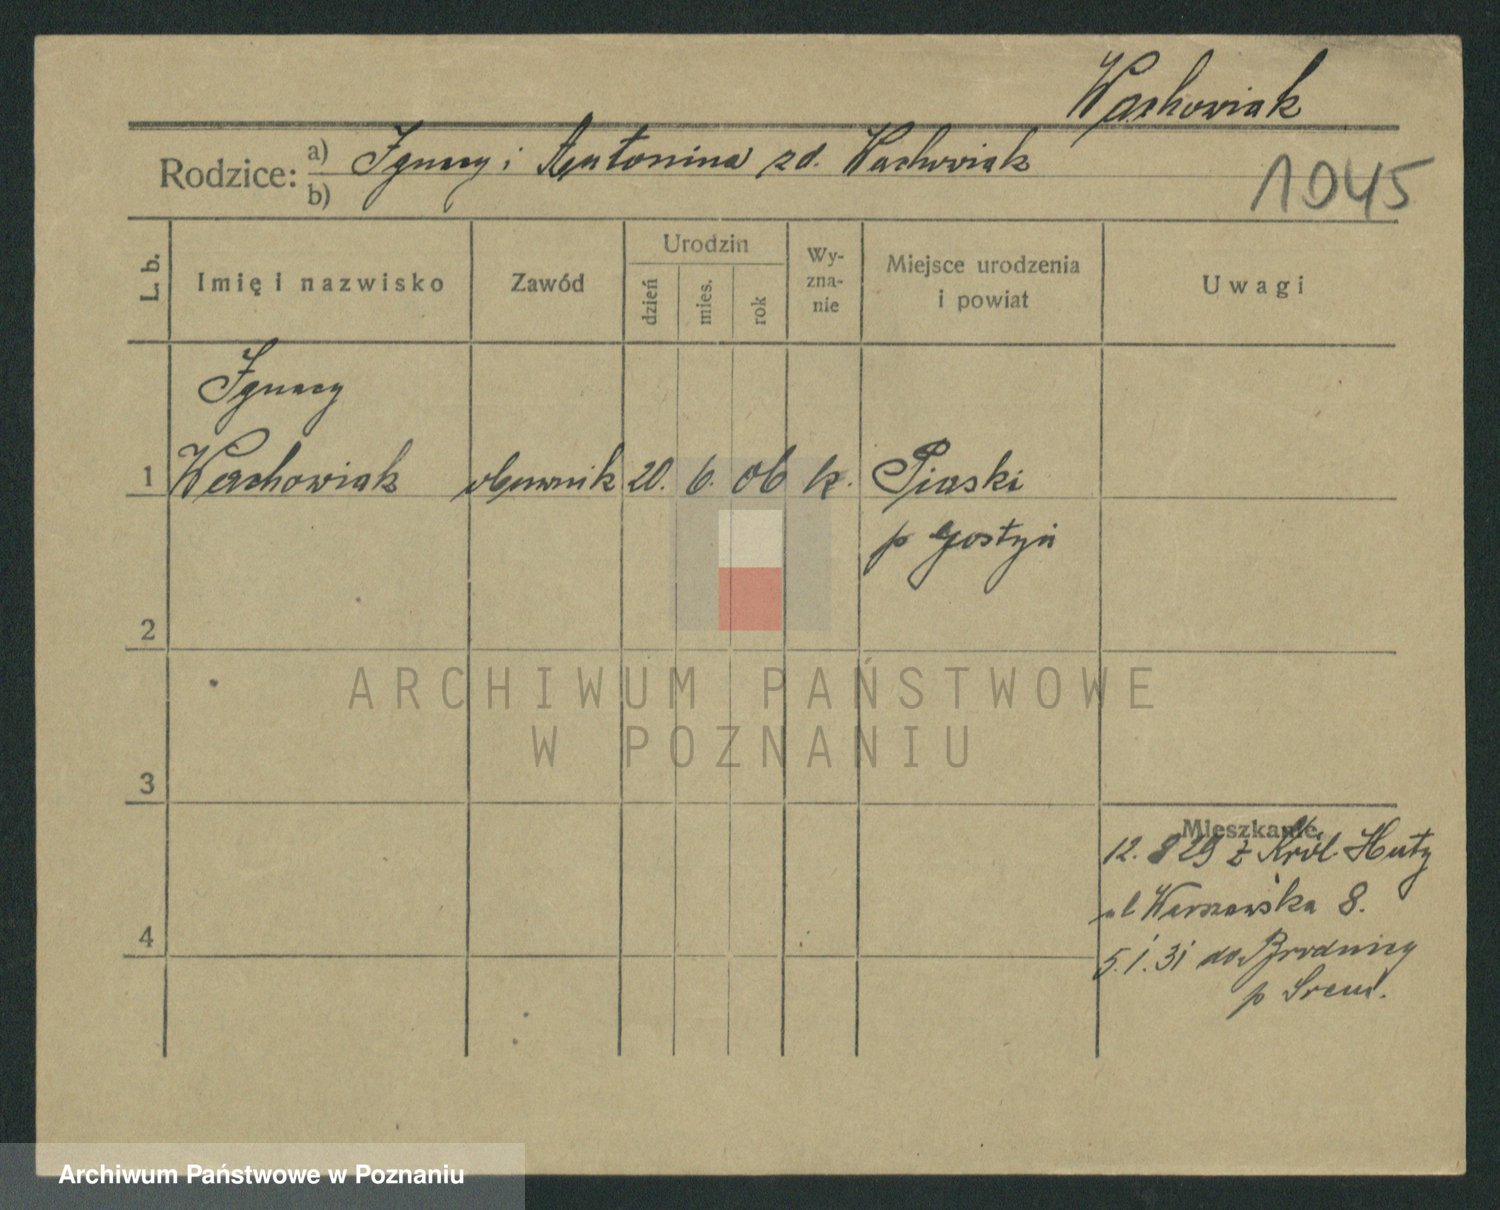 Wachowiak
Rodzice: a) Ignacy i Antonina zd. Wachowiak
b)
1045
L. b.
Imię i nazwisko
Zawód
Urodzin
dzień
mies.
rok
Wy-
zna-
nie
Miejsce urodzenia
i powiat
Uwagi
Ignacy
1 Wachowiak obuwnik 20. 6. 06 k. Piaski
p Gostyń
2
ARCHIWUM PAŃSTWOWE
W POZNANIU
3
Mieszkanie
12. 8 29 z Król. Huty
ul Warszawska 8.
4
5. 1. 31 do Brodnicy
p Śrem.
Archiwum Państwowe w Poznaniu